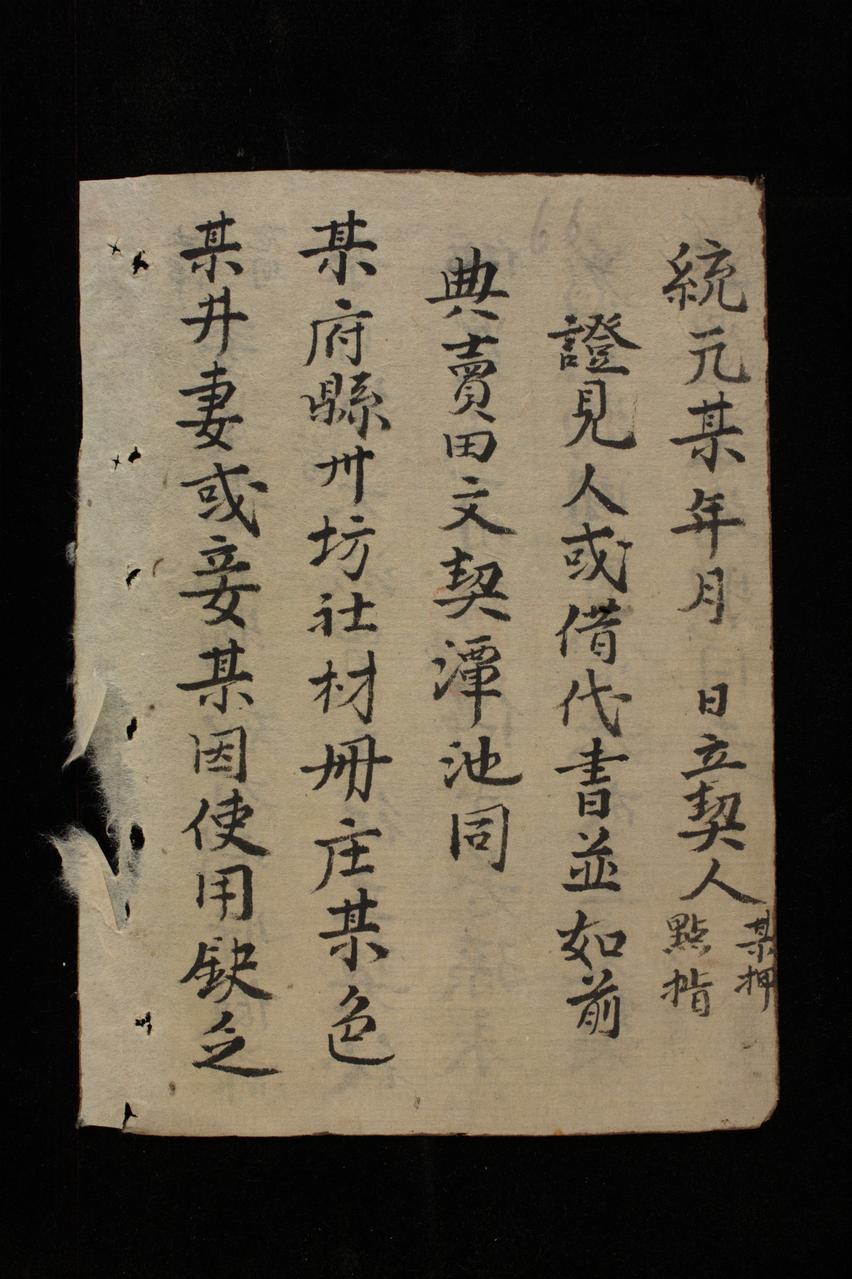 統元某年月 日立契人某押點指
證見人或借代書並如前
典賣田文契潭池同
某府縣卅坊社材冊庄某色
某井妻或妾某因使用缺乏
66